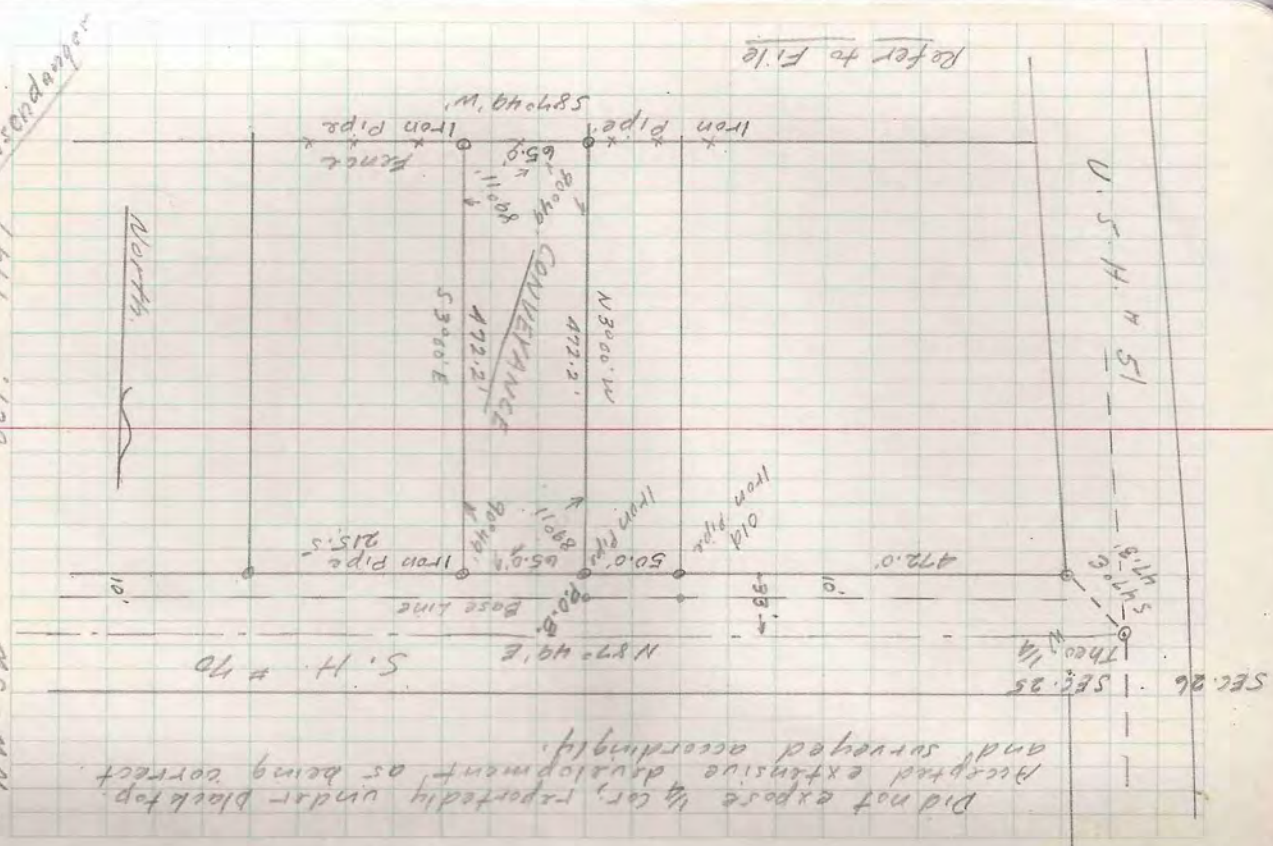 Did not expose 1/4 Cor, reportedly under blacktop.
Accepted extensive development as being correct
and surveyed accordingly.
SEC. 26
SEC. 25
Theo. W 1/4
S. H. # 70
N87°49'E
S47°E
47.3'
Base Line
P.O.B.
33
10'
10'
472.0'
50.0'
65.0'
215.5
Old
Iron Pipe
Iron Pipe
Iron Pipe
89°11'
90°49'
U. S. H. # 51
N3°00'W
472.2'
CONVEYANCE
472.2'
S3°00'E
North
90°49'
89°11'
65.0'
Iron Pipe
Iron Pipe
Fence
S87°49'W
Refer to File